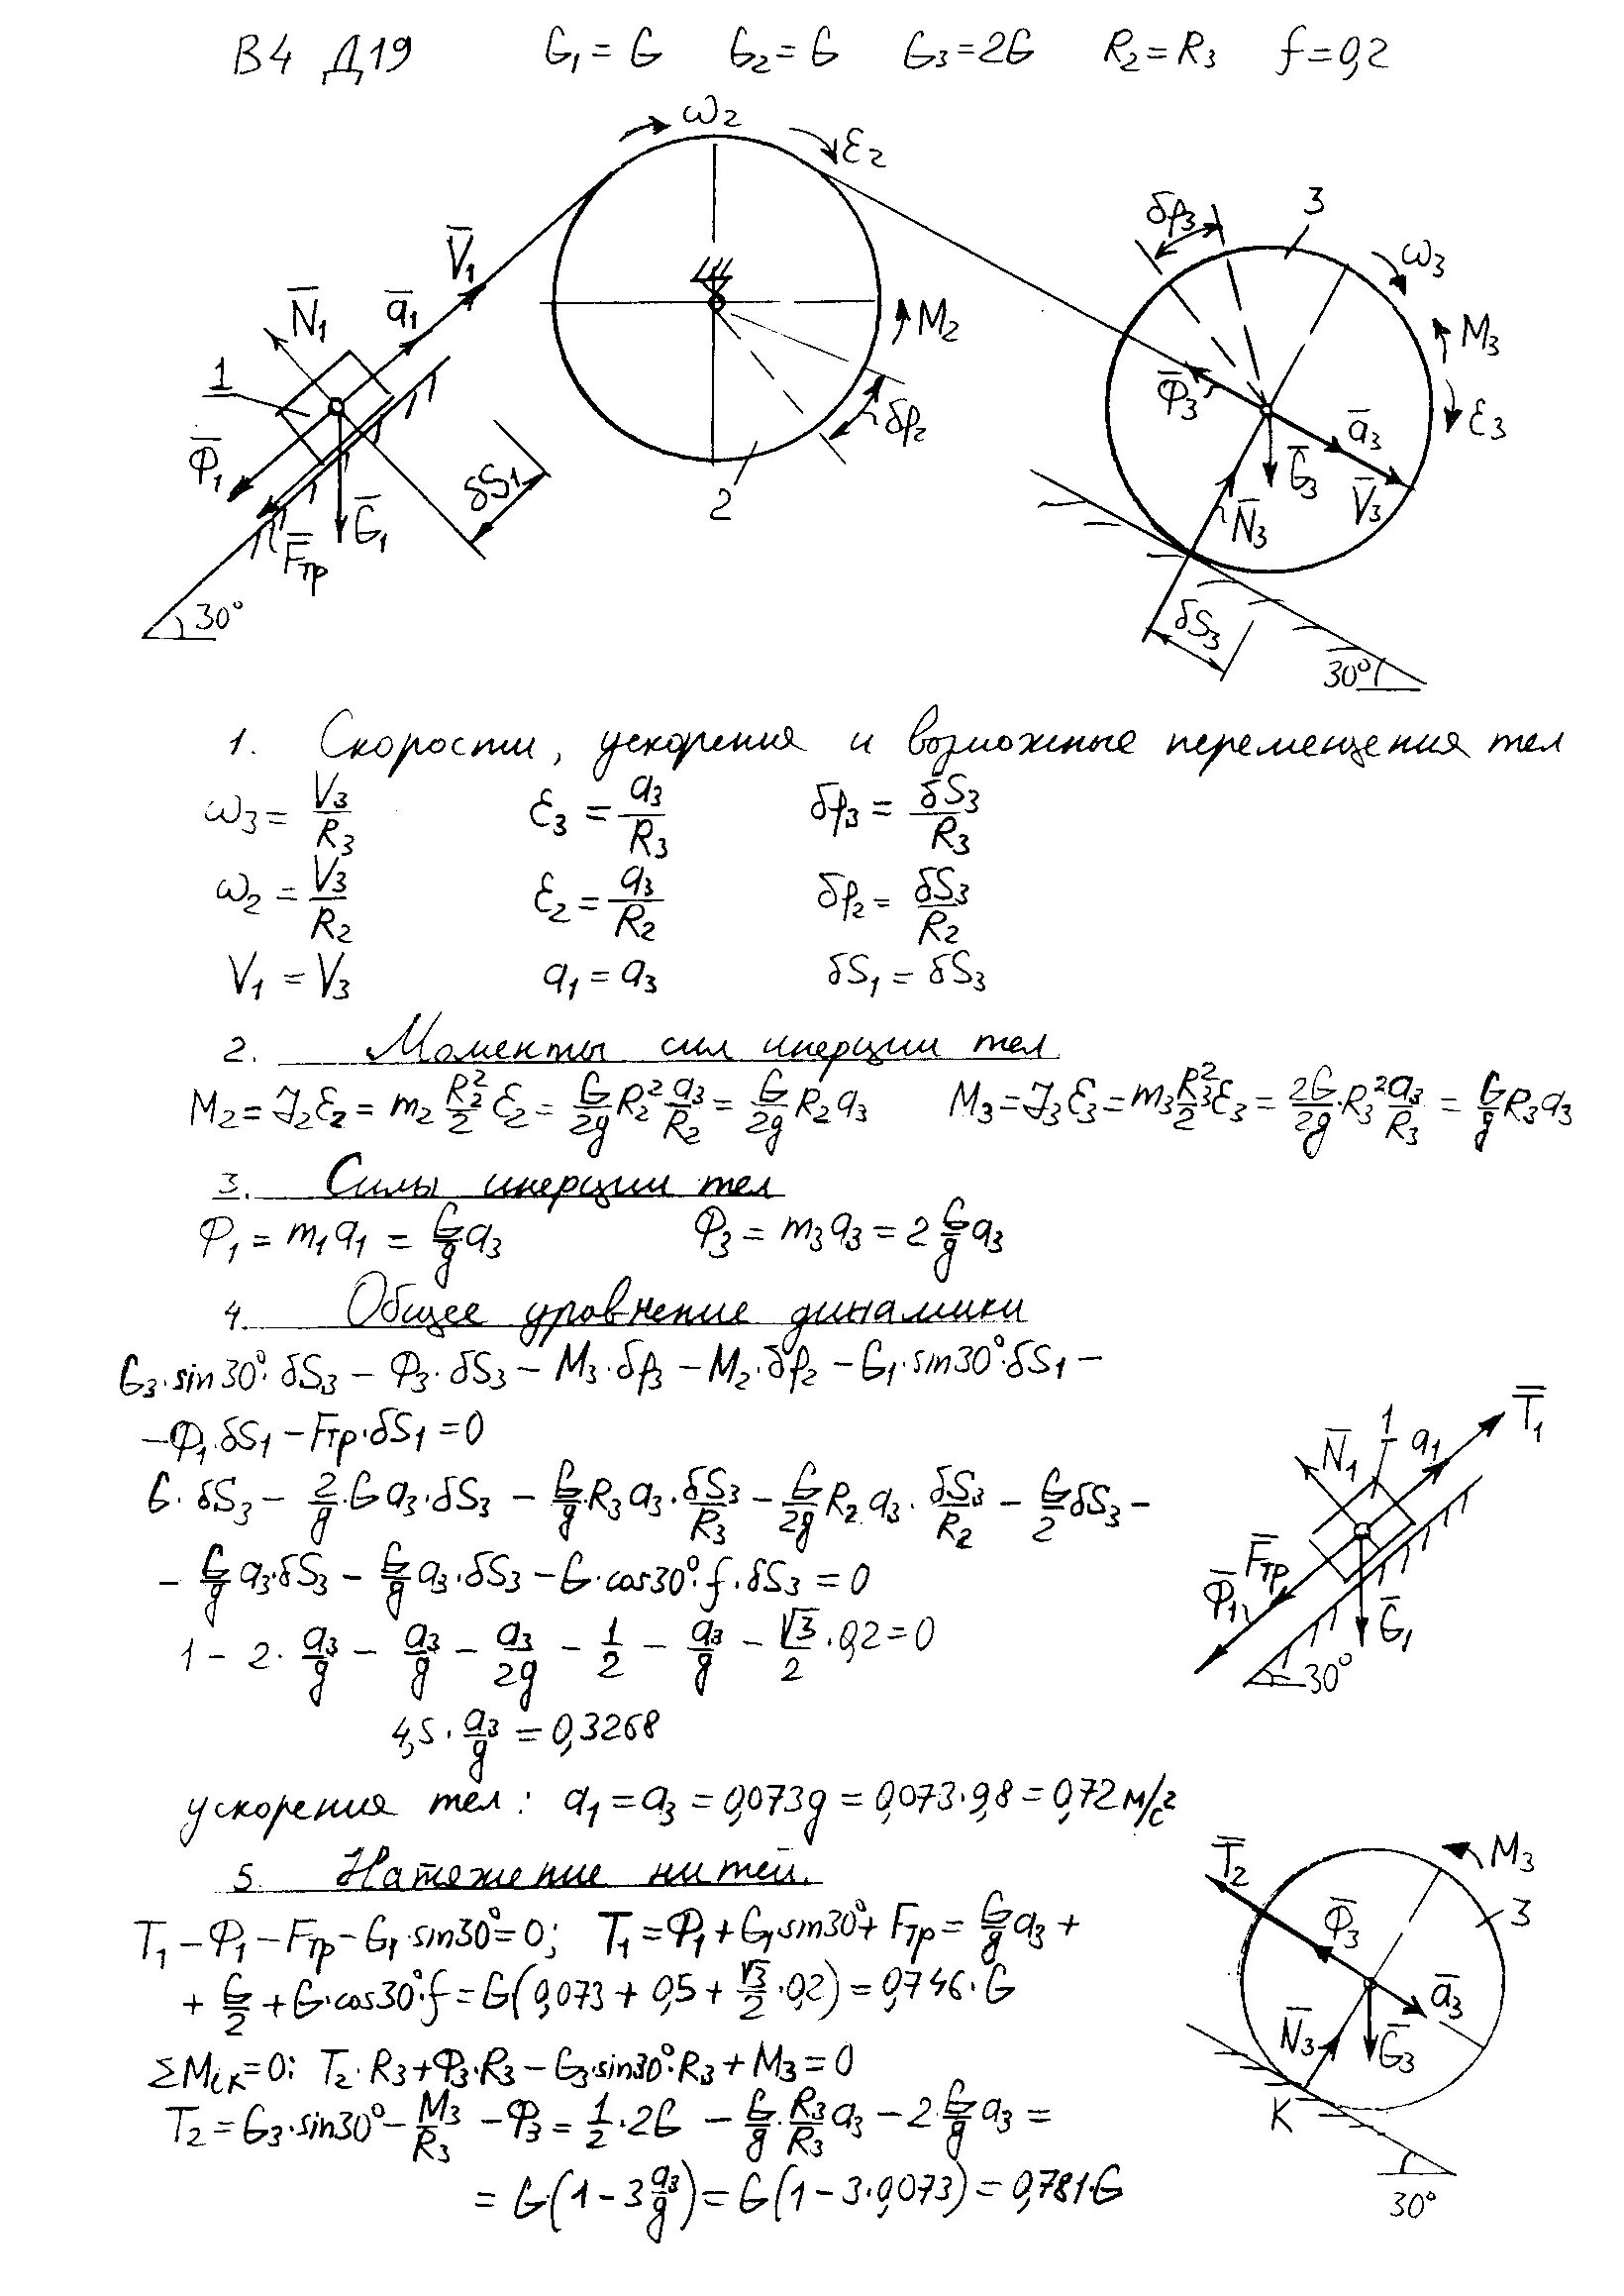 В4 Д19 G₁ = G G₂ = G G₃ = 2G R₂ = R₃ f = 0,2
ω₂
ε₂
δφ₃
3
ω₃
V̄₁
N̄₁
ā₁
M₂
M₃
1
Φ̄₃
ā₃
ε₃
δφ₂
Φ̄₁
δS₁
Ḡ₃
V̄₃
2
Ḡ₁
N̄₃
F̄тр
30°
δS₃
30°
1. Скорости, ускорения и возможные перемещения тел
ω₃ = V₃/R₃ ε₃ = a₃/R₃ δφ₃ = δS₃/R₃
ω₂ = V₃/R₂ ε₂ = a₃/R₂ δφ₂ = δS₃/R₂
V₁ = V₃ a₁ = a₃ δS₁ = δS₃
2. Моменты сил инерции тел
M₂ = J₂ε₂ = m₂ R₂²/2 ε₂ = G/2g R₂² a₃/R₂ = G/2g R₂a₃ M₃ = J₃ε₃ = m₃ R₃²/2 ε₃ = 2G/2g · R₃² a₃/R₃ = G/g R₃a₃
3. Силы инерции тел
Φ₁ = m₁a₁ = G/g a₃ Φ₃ = m₃a₃ = 2 G/g a₃
4. Общее уровнение динамики
G₃·sin30°·δS₃ − Φ₃·δS₃ − M₃·δφ₃ − M₂·δφ₂ − G₁·sin30°·δS₁ −
− Φ₁·δS₁ − Fтр·δS₁ = 0
G·δS₃ − 2/g·Ga₃·δS₃ − G/g·R₃a₃·δS₃/R₃ − G/2g R₂a₃·δS₃/R₂ − G/2 δS₃ −
− G/g a₃·δS₃ − G/g a₃·δS₃ − G·cos30°·f·δS₃ = 0
1 − 2·a₃/g − a₃/g − a₃/2g − 1/2 − a₃/g − √3/2·0,2 = 0
4,5·a₃/g = 0,3268
T̄₁
1
a₁
N̄₁
F̄тр
Φ̄₁
Ḡ₁
30°
ускорения тел: a₁ = a₃ = 0,073g = 0,073·9,8 = 0,72 м/с²
5. Натяжение нитей.
T₁ − Φ₁ − Fтр − G₁·sin30° = 0; T₁ = Φ₁ + G₁sin30° + Fтр = G/g a₃ +
+ G/2 + G·cos30°·f = G(0,073 + 0,5 + √3/2·0,2) = 0,746·G
ΣMᵢₖ = 0: T₂·R₃ + Φ₃·R₃ − G₃·sin30°·R₃ + M₃ = 0
T₂ = G₃·sin30° − M₃/R₃ − Φ₃ = 1/2·2G − G/g·R₃/R₃ a₃ − 2·G/g a₃ =
= G·(1 − 3 a₃/g) = G(1 − 3·0,073) = 0,781·G
T̄₂
M₃
Φ̄₃
3
ā₃
N̄₃
Ḡ₃
K
30°